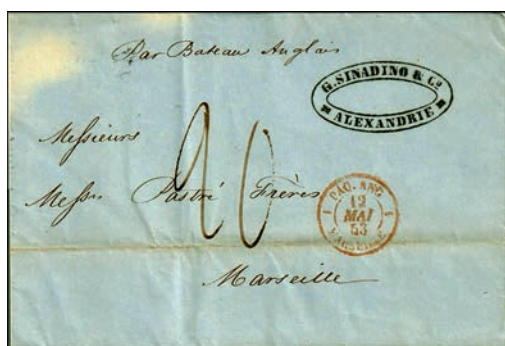 Par Bateau Anglais
G. SINADINO & Cº
ALEXANDRIE
Messieurs
Mess.rs Pastré Frères
20
PAQ. ANG.
1 12 1
MAI
53
MARSEILLE
Marseille